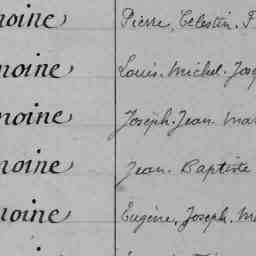 moine Pierre, Celestin. F
moine Louis. Michel. Jos
moine Joseph. Jean. Mar
moine Jean. Baptiste
moine Eugène, Joseph. M